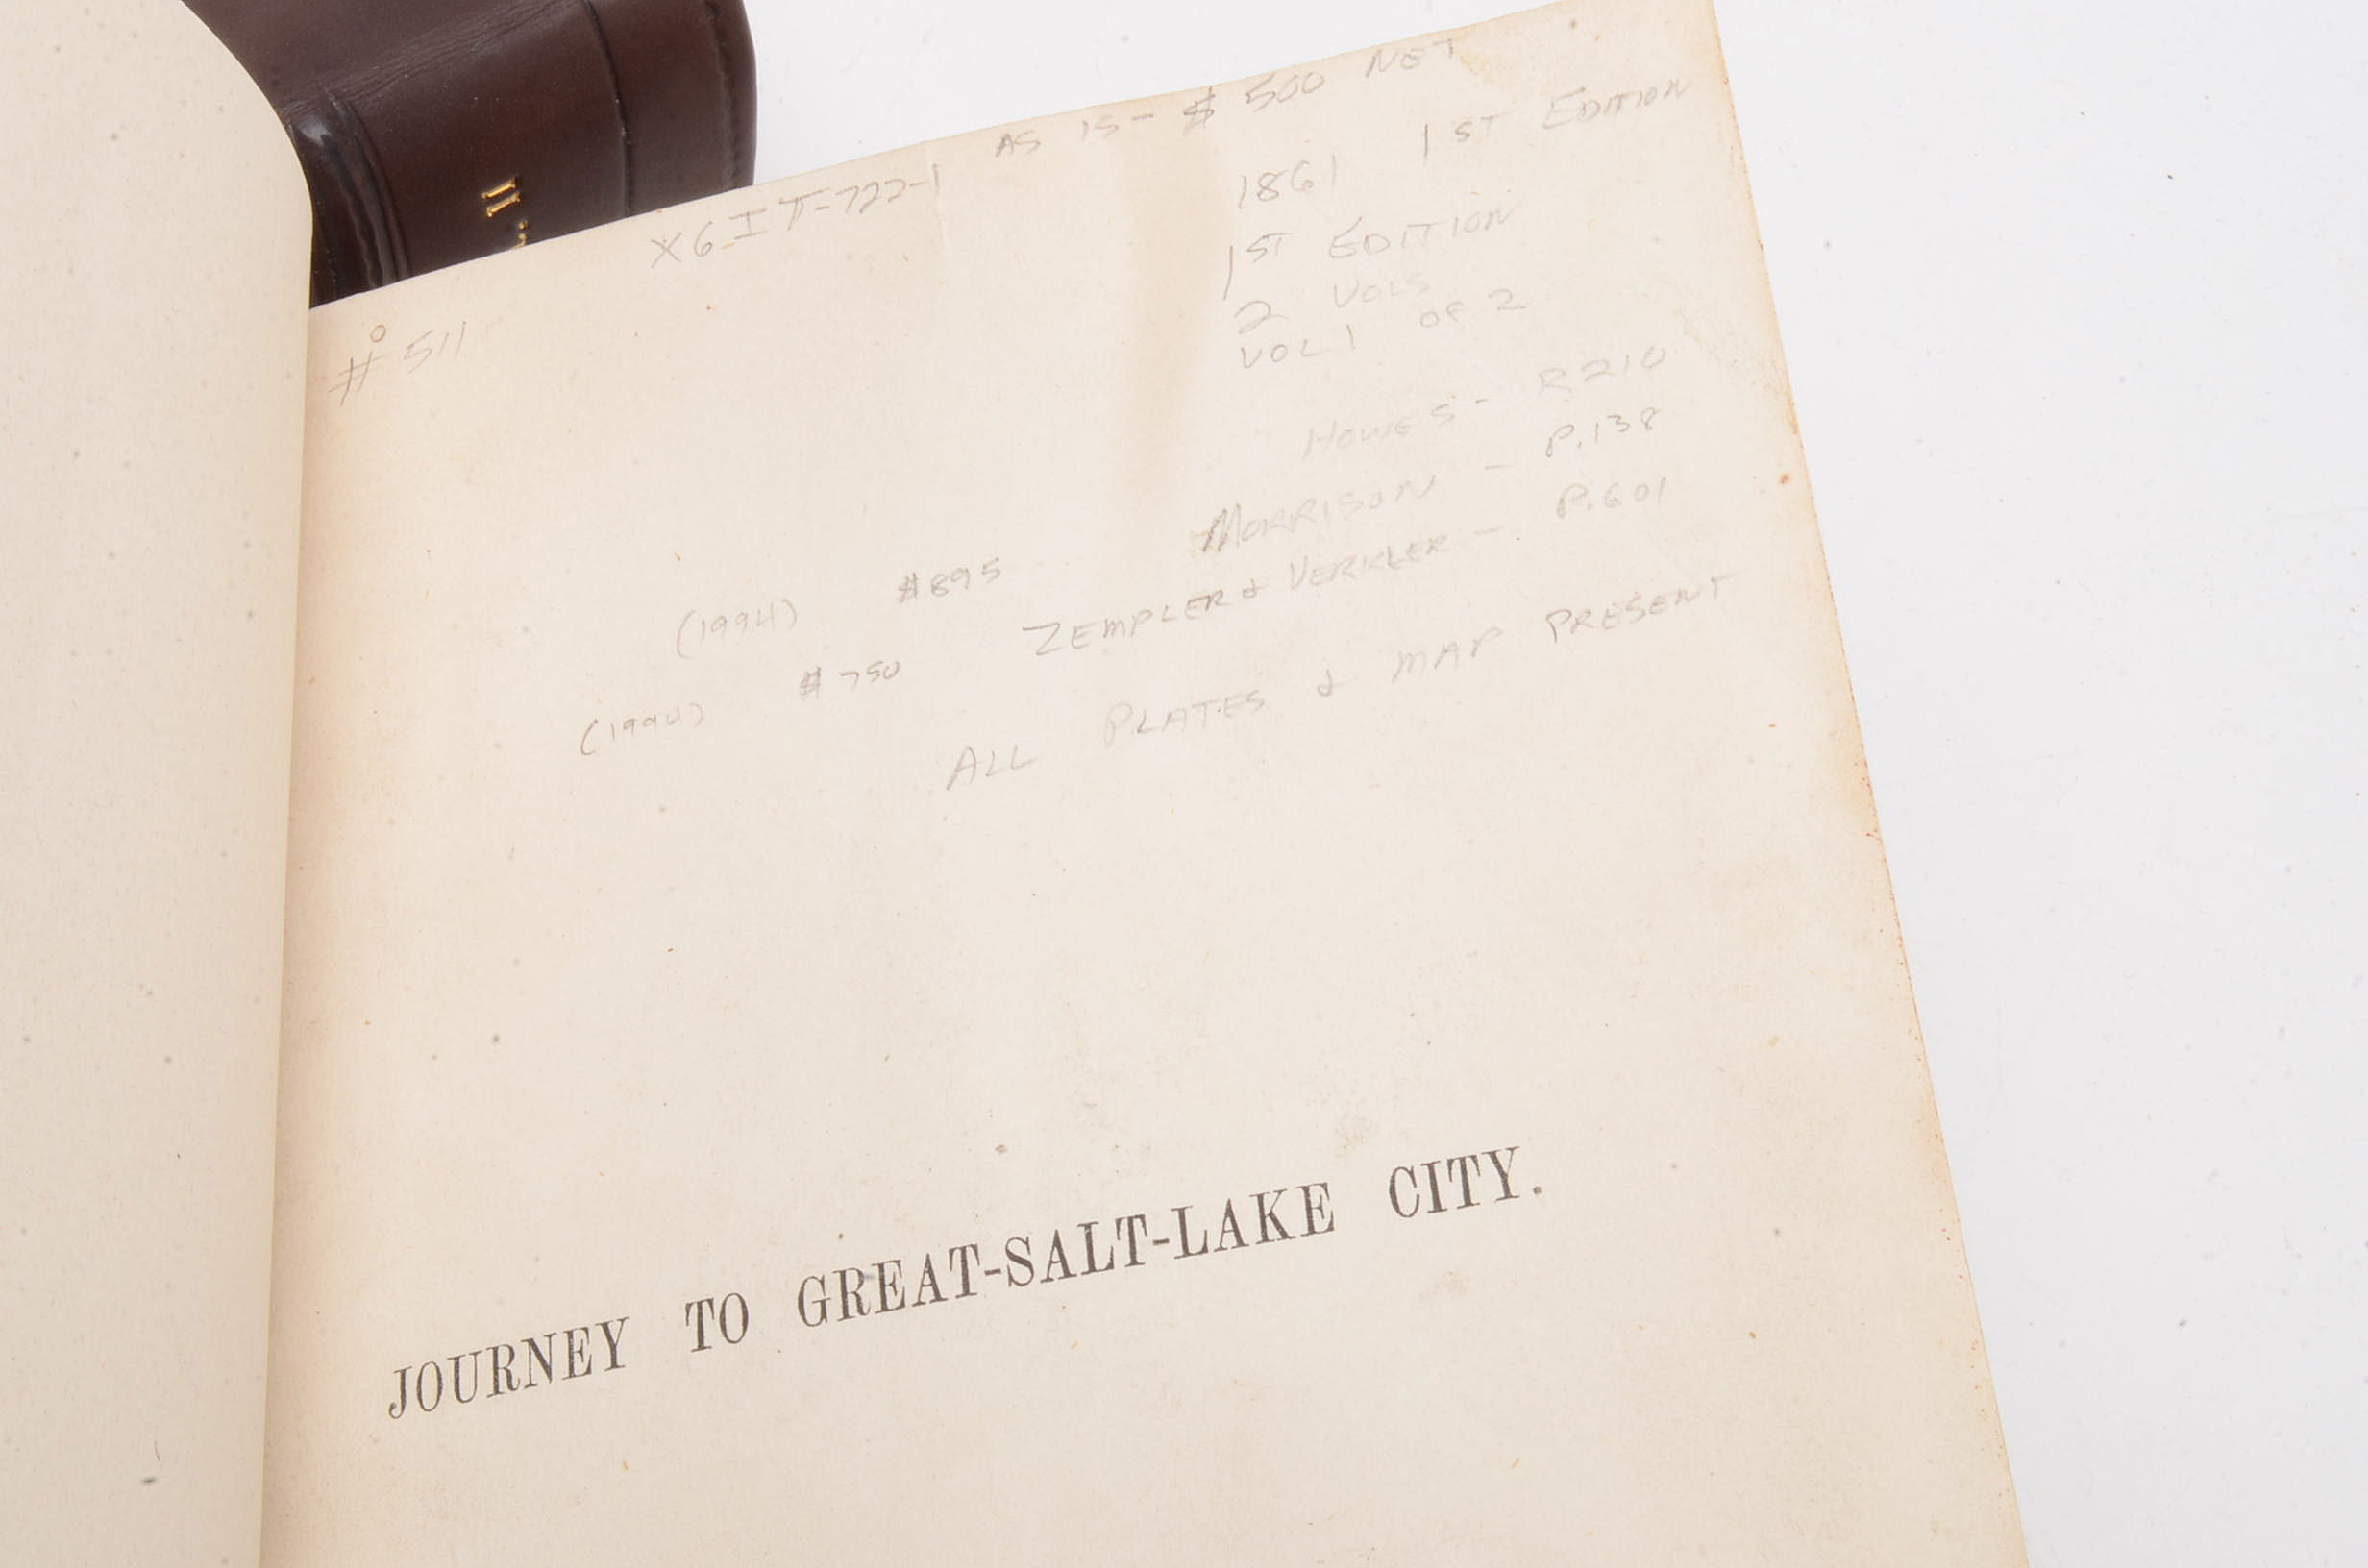 II.
AS IS - $500 NET
X6IT-722-1
#511
1861 1ST EDITION
1ST EDITION
2 VOLS
VOL 1 OF 2
HOWES - R210
MORRISON - P.138
(1994) $895
ZEMPLER & VERKLER - P.601
(1994) $750
ALL PLATES & MAP PRESENT
JOURNEY TO GREAT-SALT-LAKE CITY.